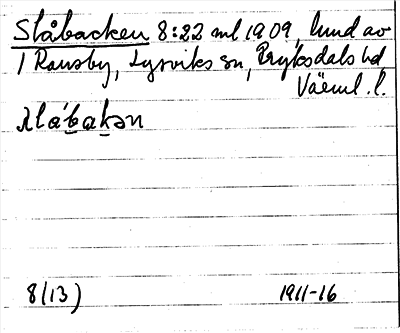 Slåbacken 8:22 ml 1909, lund av
1 Ransby, Lysviks sn, Fryksdals hd
Värml. l.
8(13) 1911-16